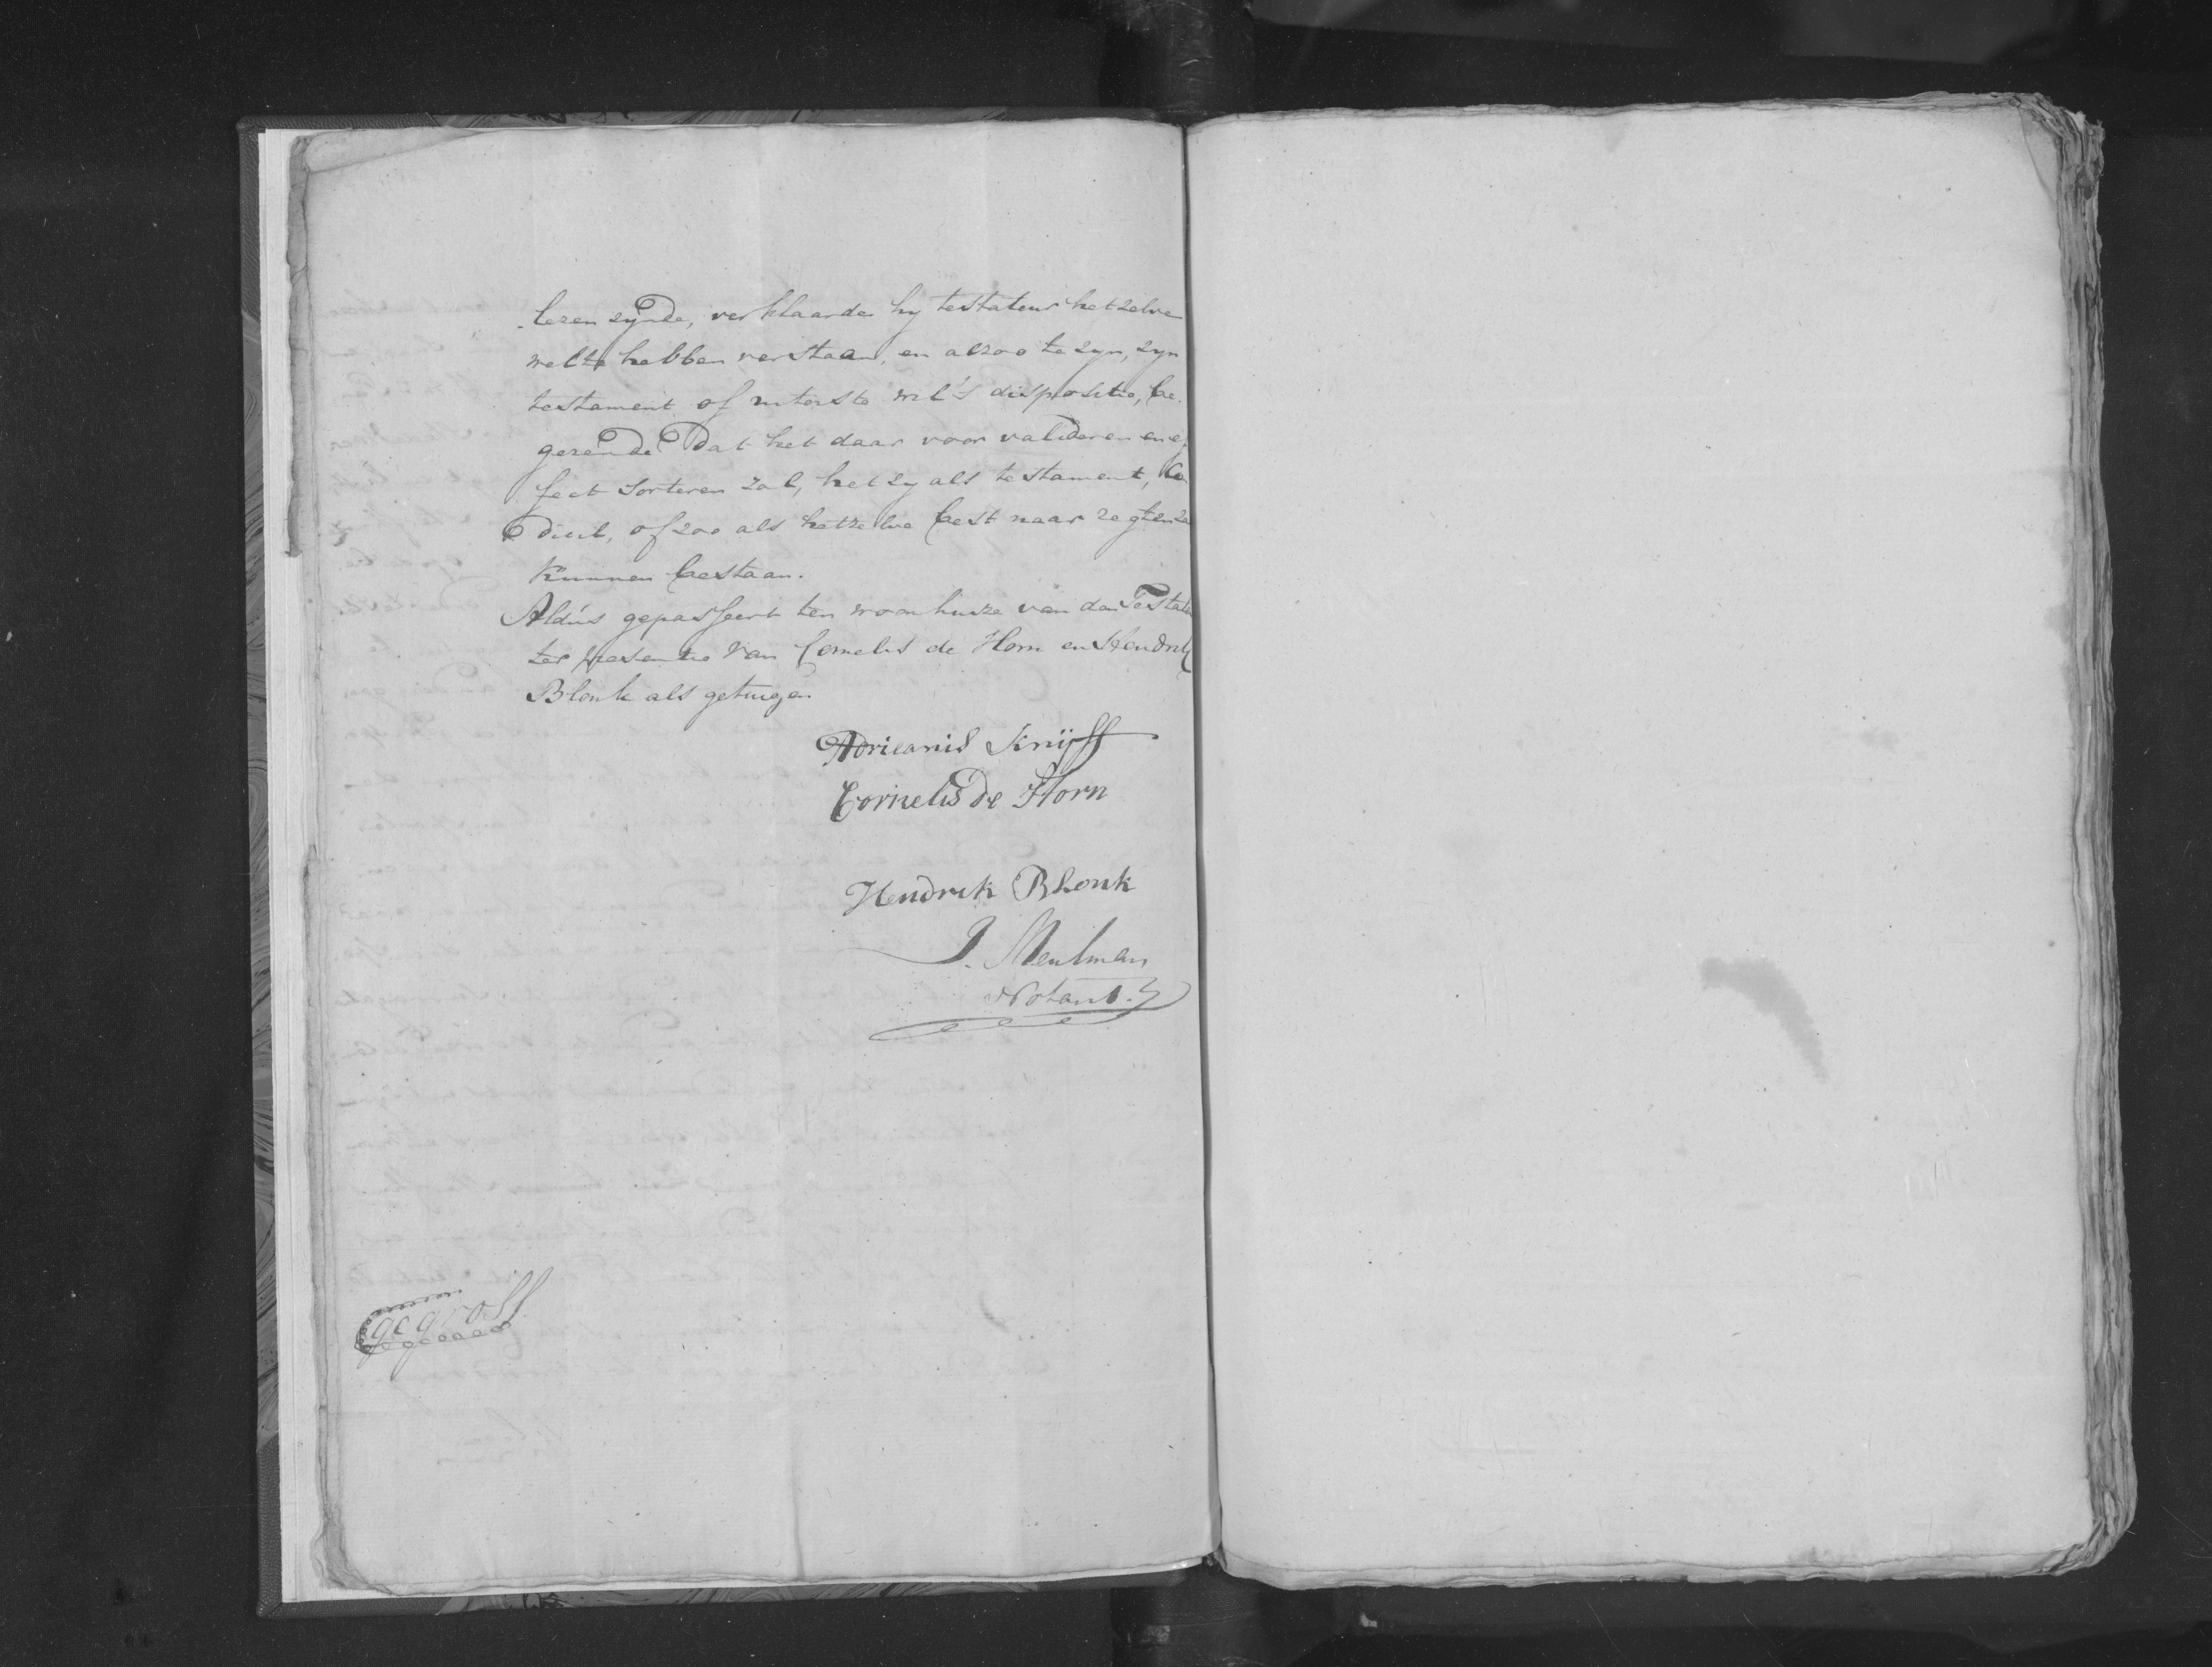 lezen zynde, verklaarde hy testateur hetzelve
wel te hebben verstaan, en alzoo te zyn, zyn
testament of uiterste wil's dispositie, be-
gerende dat het daar voor valideren en ef
fect sorteren zal, het zy als testament, Co
dicil, of zoo als hetzelve best naar regten za
kunnen bestaan.
Aldús gepasseert ten woonhuize van den Testate
ter presentie van Cornelis de Horn en Hendrik
Blonk als getuigen
Adrieanis Knijff
Cornelis de Horn
Hendrik Blonk
J. Meulman
Notaris.
gegross